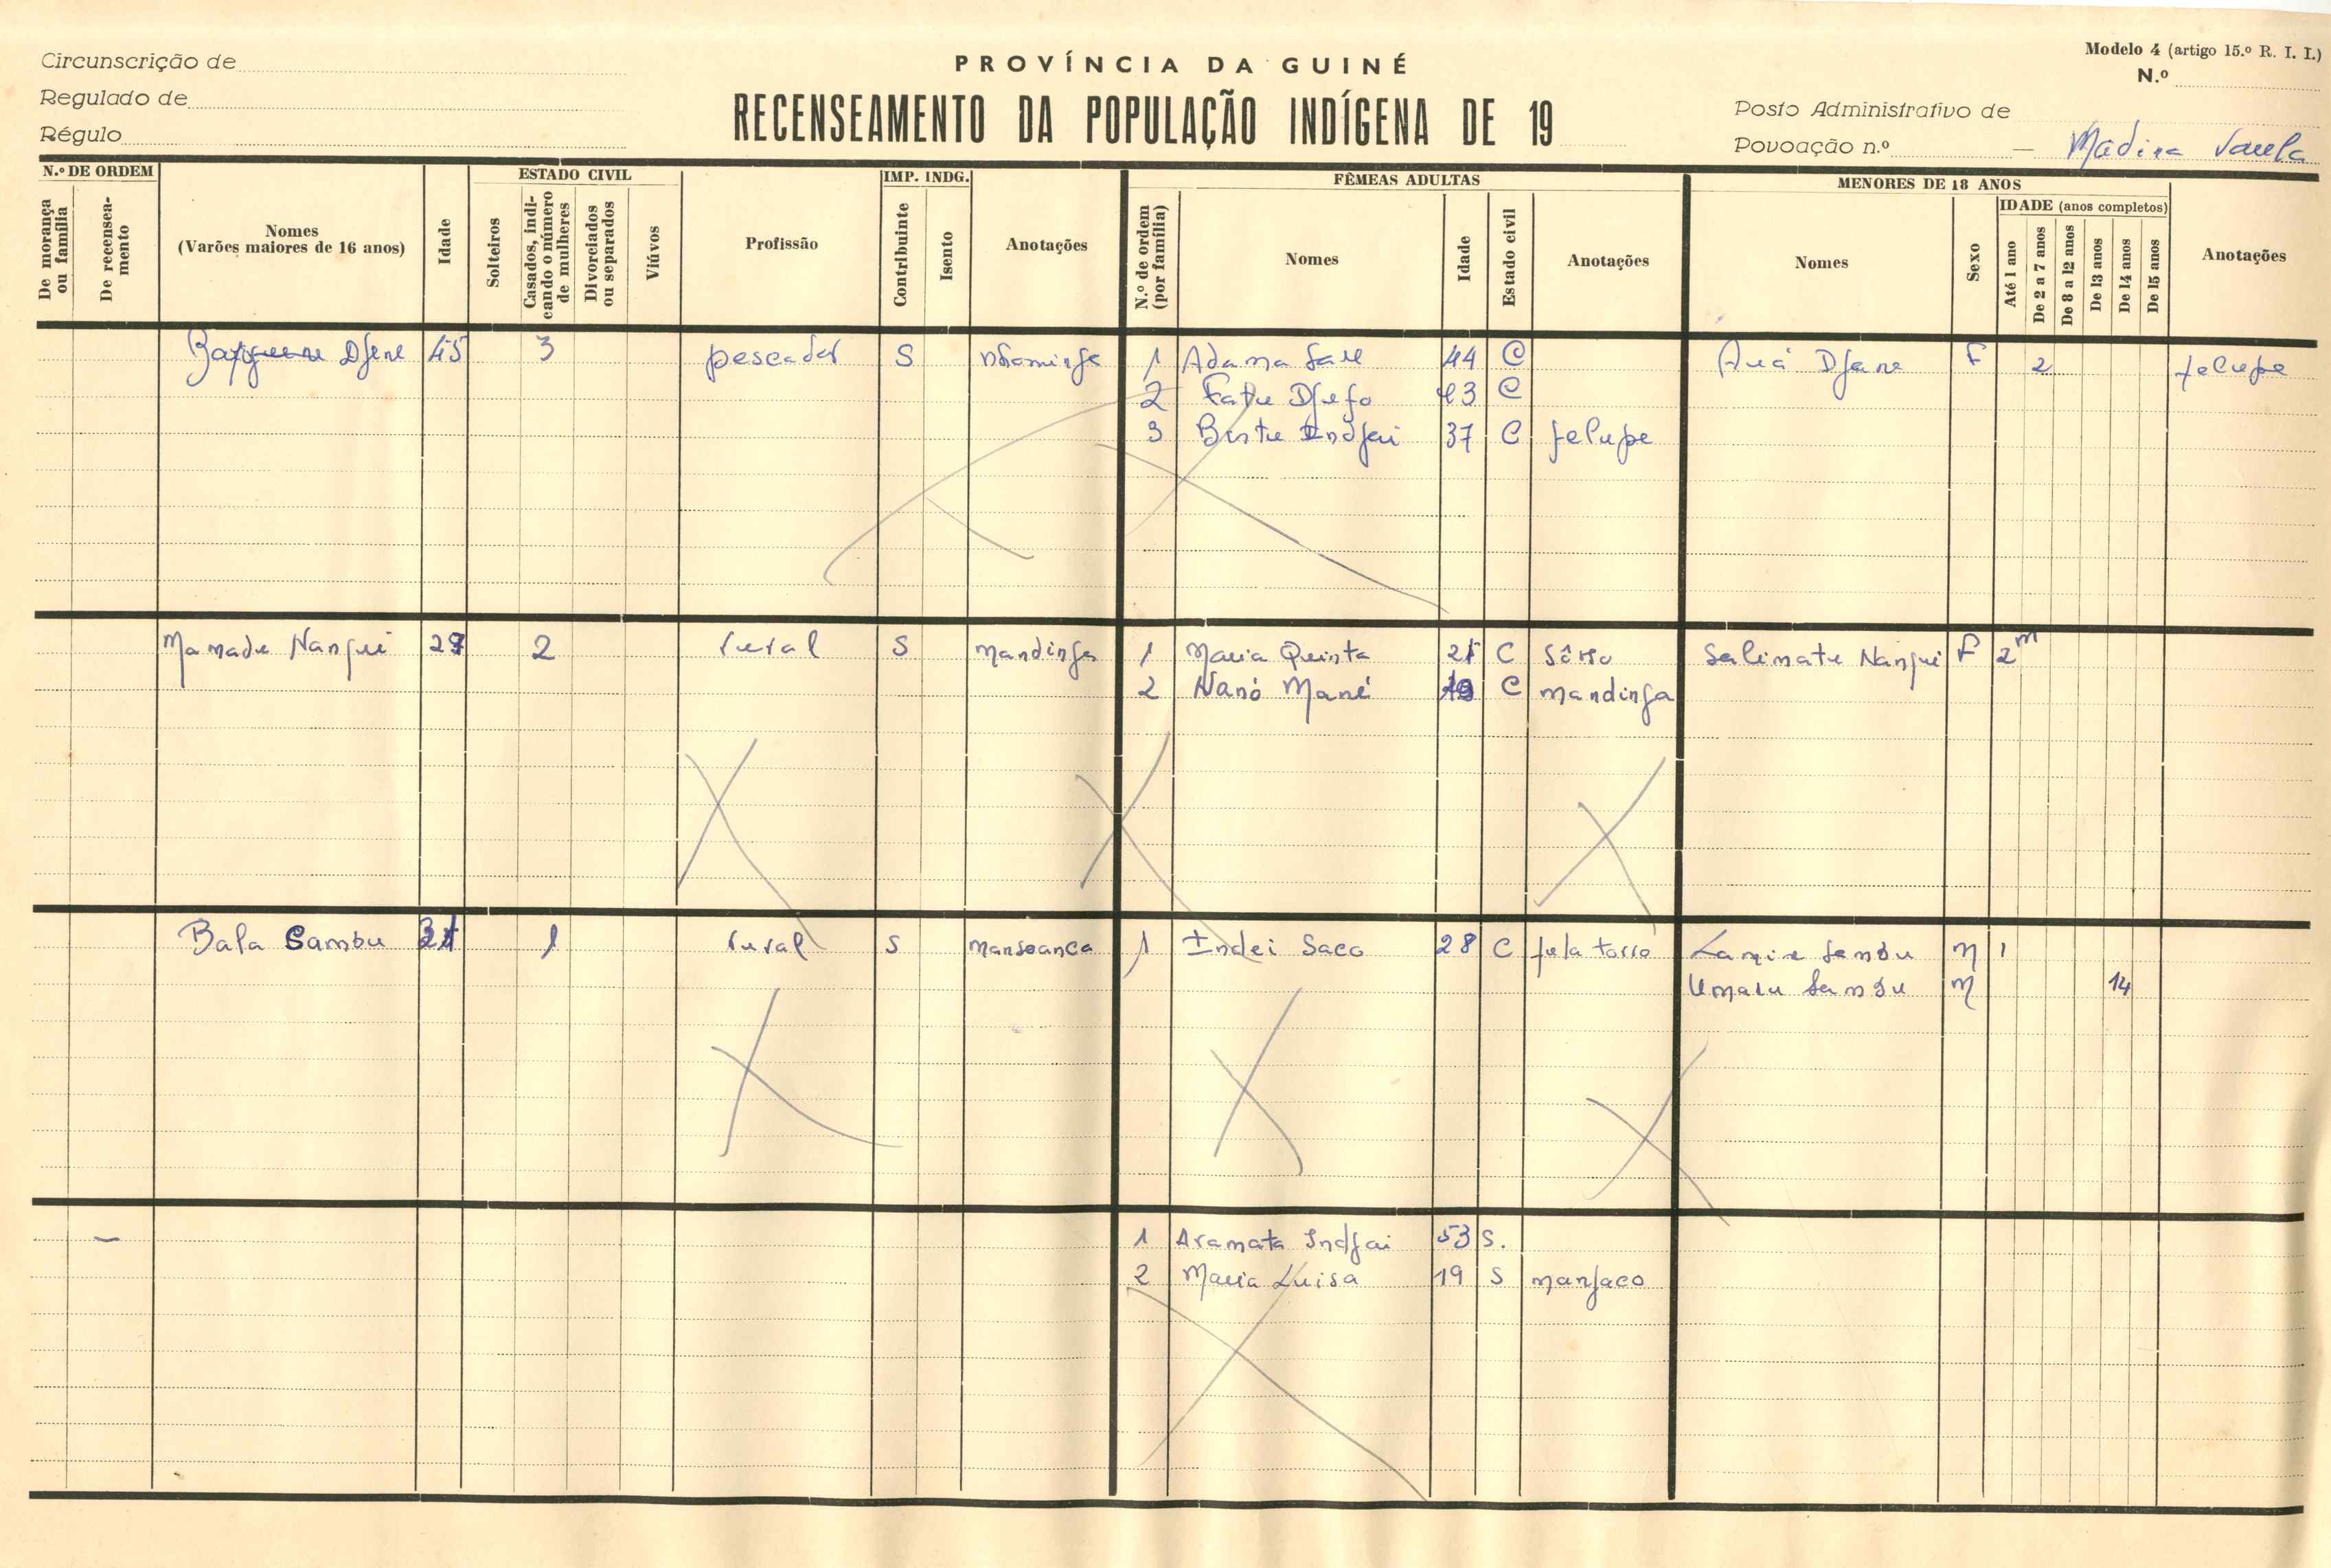 Circunscrição de
Regulado de
Régulo
PROVÍNCIA DA GUINÉ
RECENSEAMENTO DA POPULAÇÃO INDÍGENA DE 19
Modelo 4 (artigo 15.º R. I. I.)
N.º
Posto Administrativo de
Povoação n.º — Madina
N.º DE ORDEM
De morança ou família
De recensea-mento
Nomes
(Varões maiores de 16 anos)
Idade
ESTADO CIVIL
Solteiros
Casados, indi-cando o número de mulheres
Divorciados ou separados
Viúvos
Profissão
IMP. INDG.
Contribuinte
Isento
Anotações
FÊMEAS ADULTAS
N.º de ordem (por família)
Nomes
Idade
Estado civil
Anotações
MENORES DE 18 ANOS
Nomes
Sexo
IDADE (anos completos)
Até 1 ano
De 2 a 7 anos
De 8 a 12 anos
De 13 anos
De 14 anos
De 15 anos
Anotações
45 3 pescador S 1 Adama 44 C Auá Djane F 2 felupe
2 Fatu 43 C
3 Bintu Indjai 37 C felupe
Mamadu Nanqui 2 rural S mandinga 1 Maria Quinta 21 C Salimatu Nanqui F 2 m
2 Nanó Mané 19 C mandinga
Bala Sambu 1 rural S mansoanca 1 Indei Saco 28 C Lamine Sambu M 1
Umaru Sambu M 14
1 Aramata Indjai 53 S.
2 Maria Luisa 19 S manjaco